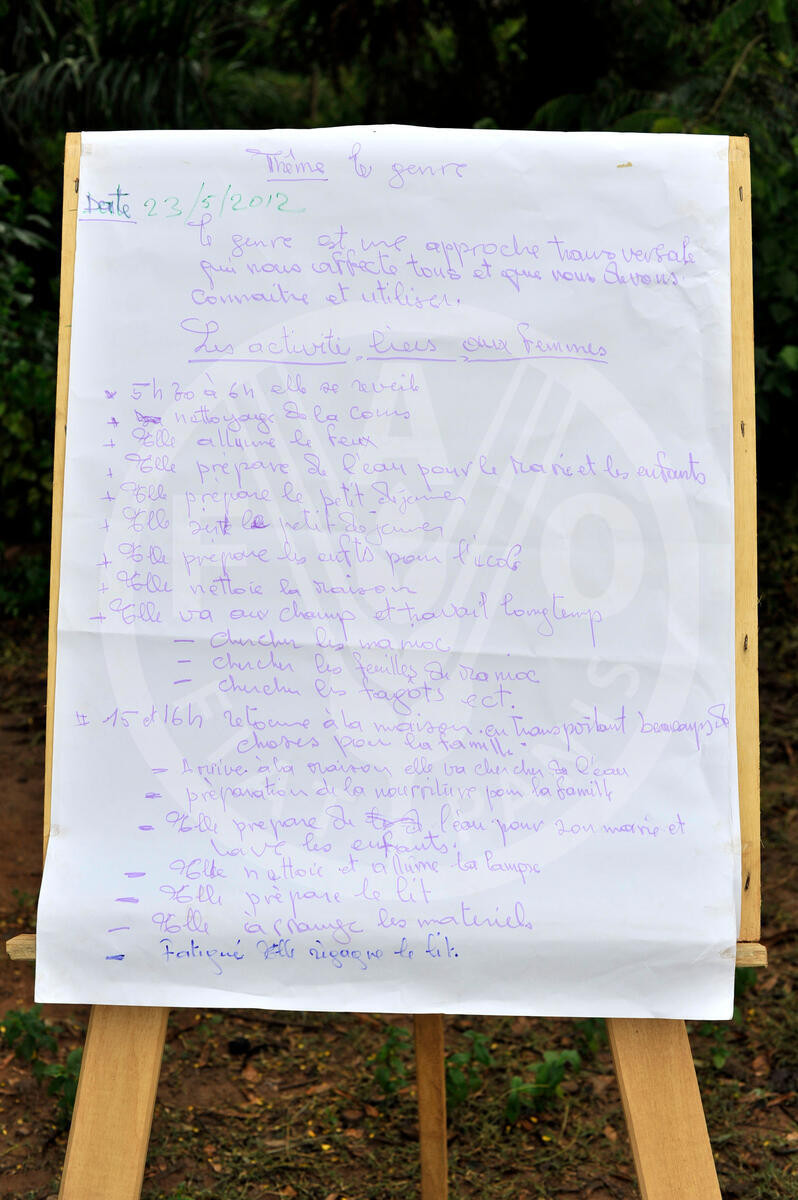 Thême le genre
Date 23/5/2012
le genre est une approche transversale
qui nous affecte tous et que nous devons
connaitre et utiliser.
Les activité liées aux femmes
5h30 à 6h elle se reveile
nettoyage de la cours
+ Elle allume le feux
+ Elle prépare de l'eau pour le marie et les enfants
+ Elle prépare le petit dejeuner
+ Elle sert le petit dejeuner
+ Elle prépare les enfts pour l'école
+ Elle nettoie la maison
+ Elle va aux champ et travail longtemp
- chercher les manioc
- chercher les feuilles de manioc
- chercher les fagots ect.
15 et 16h retourne à la maison en transportant beaucoups de
choses pour la famille.
- Arrive à la maison elle va chercher de l'eau
- préparation de la nourriture pour la famille
- Elle prepare de l'eau pour son marie et
lave les enfants.
- Elle nettoie et allume la lampe
- Elle prépare le lit
- Elle àrrange les materiels
- Fatigué Elle régagne le lit.
FAO
FIAT PANIS